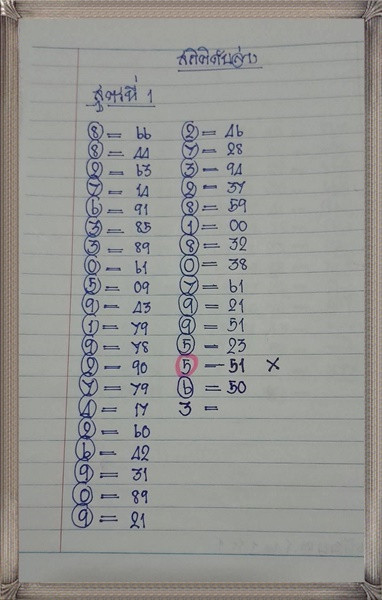 สถิติดับล่าง
สูตรที่ 1
8 = 66
8 = 44
2 = 63
7 = 14
6 = 91
3 = 85
3 = 89
0 = 61
5 = 09
9 = 43
1 = 79
9 = 78
2 = 90
7 = 79
4 = 17
2 = 60
6 = 42
9 = 31
0 = 89
9 = 21
2 = 46
7 = 28
3 = 94
2 = 37
8 = 59
1 = 00
8 = 32
0 = 38
7 = 61
9 = 21
9 = 51
5 = 23
5 = 51 ×
6 = 50
3 =